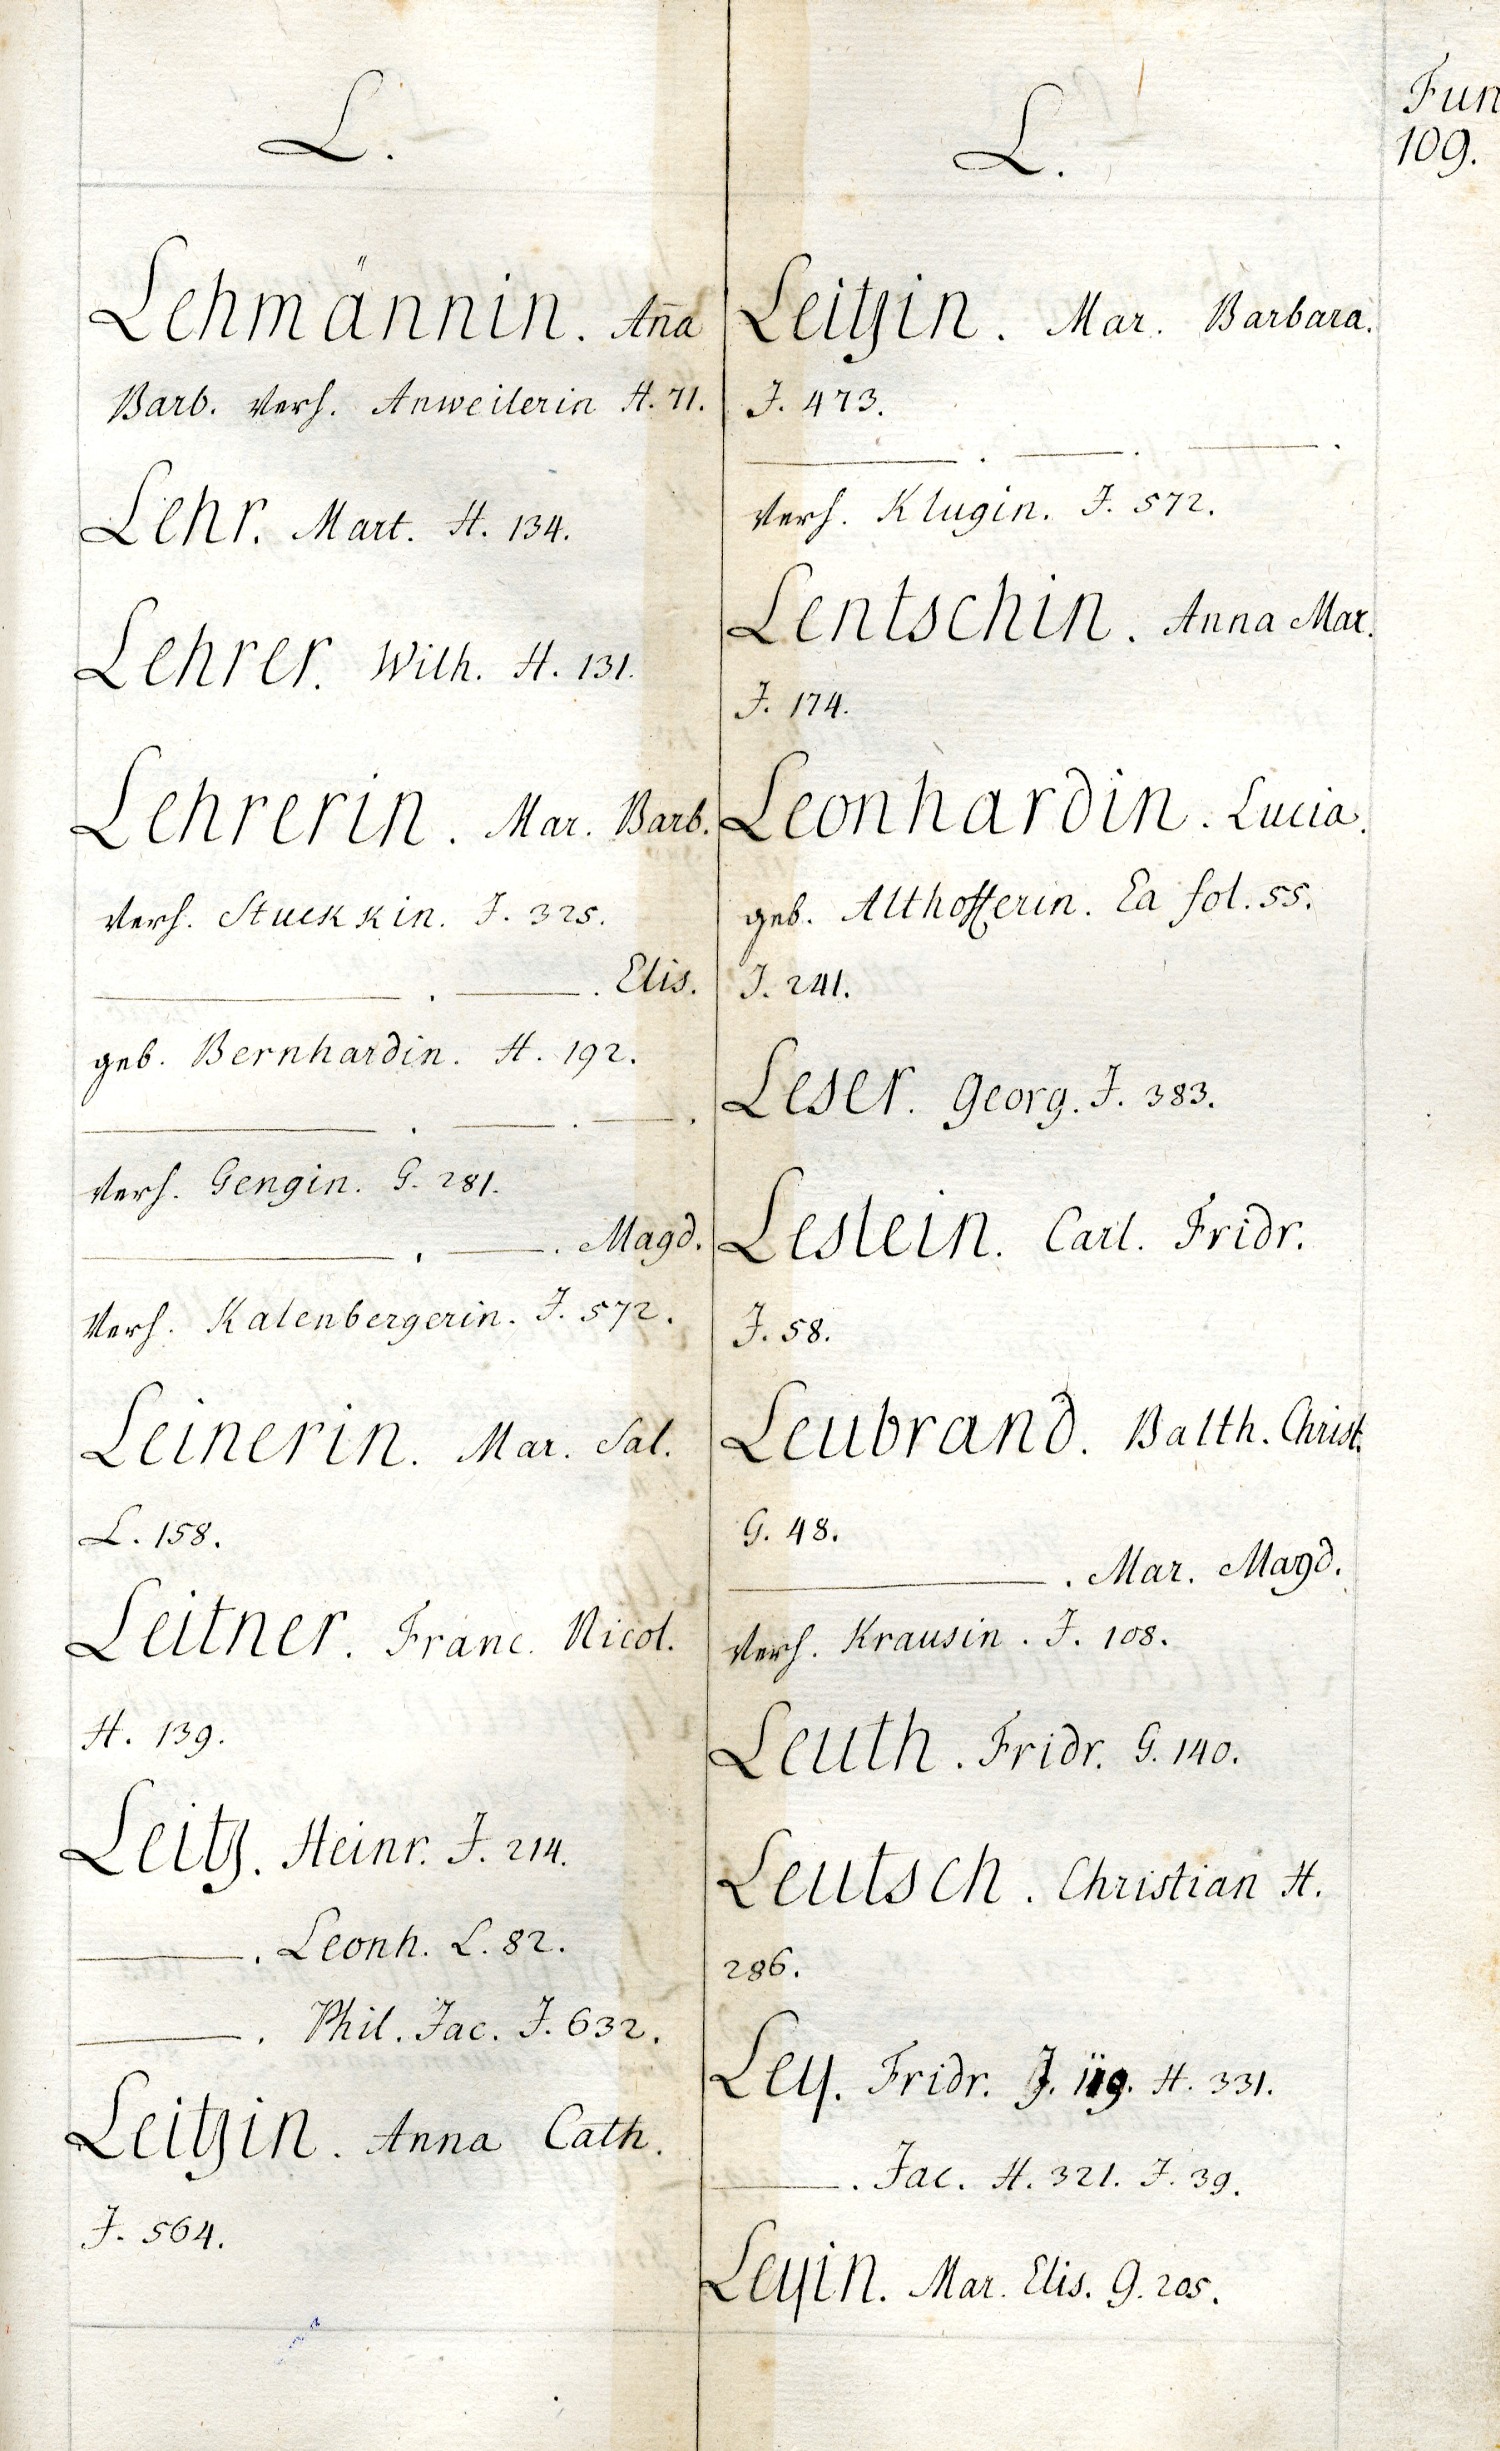 L.
Lehmännin. Aña
Barb. verh. Anweilerin H. 71.
Lehr. Mart. H. 134.
Lehrer. Wilh. H. 131.
Lehrerin. Mar. Barb.
verh. Stuckkin. J. 325.
———. ———. Elis.
geb. Bernhardin. H. 192.
———. ———. ———.
verh. Gengin. G. 281.
———. ———. Magd.
verh. Kalenbergerin. J. 572.
Leinerin. Mar. Sal.
L. 158.
Leitner. Franc. Nicol.
H. 139.
Leitz. Heinr. J. 214.
———. Leonh. L. 82.
———. Phil. Jac. J. 632.
Leitzin. Anna Cath.
J. 564.
L.
Leitzin. Mar. Barbara.
J. 473.
———. ———. ———.
verh. Klugin. J. 572.
Lentschin. Anna Mar.
J. 174.
Leonhardin. Lucia.
geb. Althofferin. Ea fol. 55.
J. 241.
Leser. Georg. J. 383.
Leslein. Carl. Fridr.
J. 58.
Leubrand. Balth. Christ.
G. 48.
———. Mar. Magd.
verh. Krausin. J. 108.
Leuth. Fridr. G. 140.
Leutsch. Christian H.
286.
Ley. Fridr. J. 119. H. 331.
———. Jac. H. 321. J. 39.
Leyin. Mar. Elis. G. 205.
Fun
109.